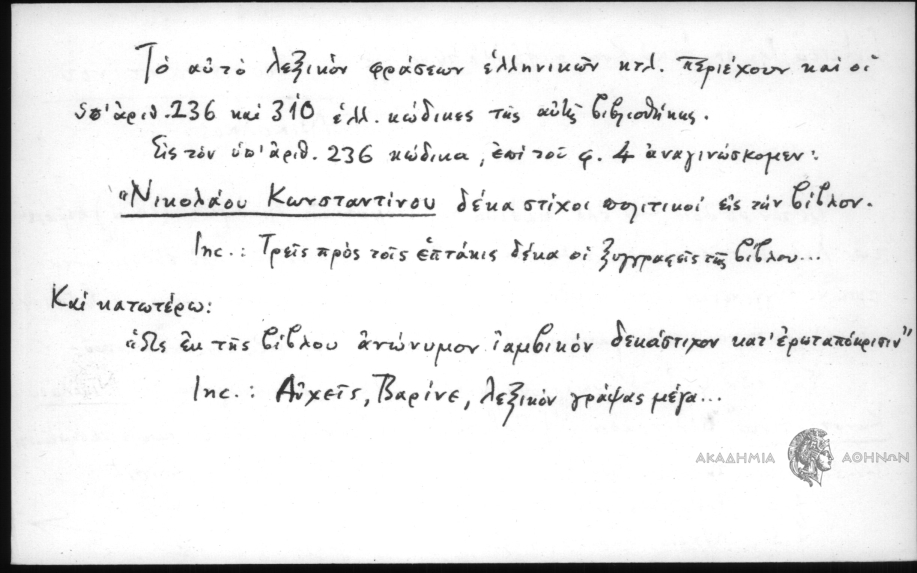 Τὸ αὐτὸ λεξικὸν φράσεων ἑλληνικῶν κτλ. περιέχουν καὶ οἱ
ὑπ' ἀριθ. 236 καὶ 310 ἑλλ. κώδικες τῆς αὐτῆς βιβλιοθήκης.
Εἰς τὸν ὑπ' ἀριθ. 236 κώδικα, ἐπὶ τοῦ φ. 4 ἀναγινώσκομεν:
"Νικολάου Κωνσταντίνου δέκα στίχοι πολιτικοὶ εἰς τὴν βίβλον.
Inc.: Τρεῖς πρὸς τοῖς ἑπτάκις δέκα οἱ ξυγγραφεῖς τῆς βίβλου...
Καὶ κατωτέρω:
ἐκ τῆς βίβλου ἀνώνυμον ἰαμβικὸν δεκάστιχον κατ' ἐρωταπόκρισιν"
Inc.: Αὐχεῖς, Βαρῖνε, λεξικὸν γράψας μέγα...
ΑΚΑΔΗΜΙΑ ΑΘΗΝΩΝ